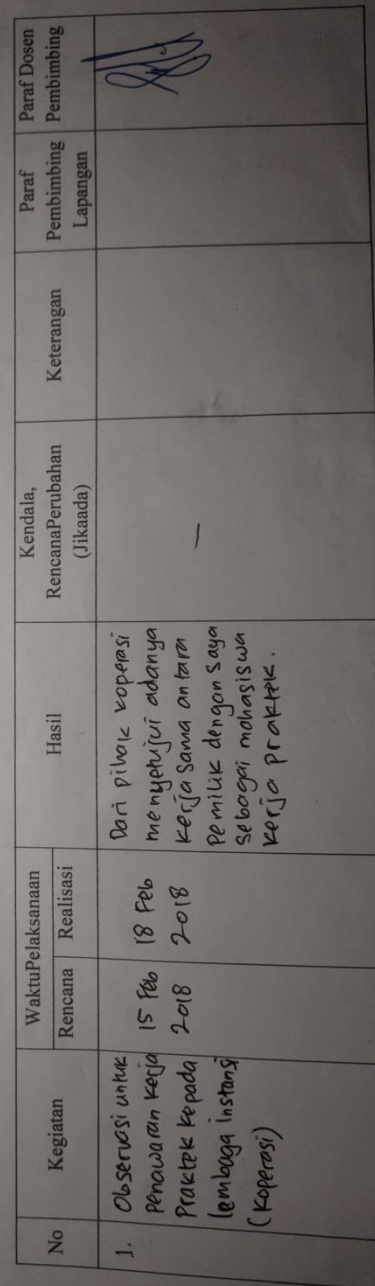 No
Kegiatan
WaktuPelaksanaan
Rencana
Realisasi
Hasil
Kendala,
RencanaPerubahan
(Jikaada)
Keterangan
Paraf
Pembimbing
Lapangan
Paraf Dosen
Pembimbing
1.
Observasi untuk
Penawaran Kerja
Praktek Kepada
lembaga instansi
(Koperasi)
15 Feb
2018
18 Feb
2018
Dari pihak koperasi
menyetujui adanya
kerja sama antara
Pemilik dengan saya
sebagai mahasiswa
kerja praktek.
—